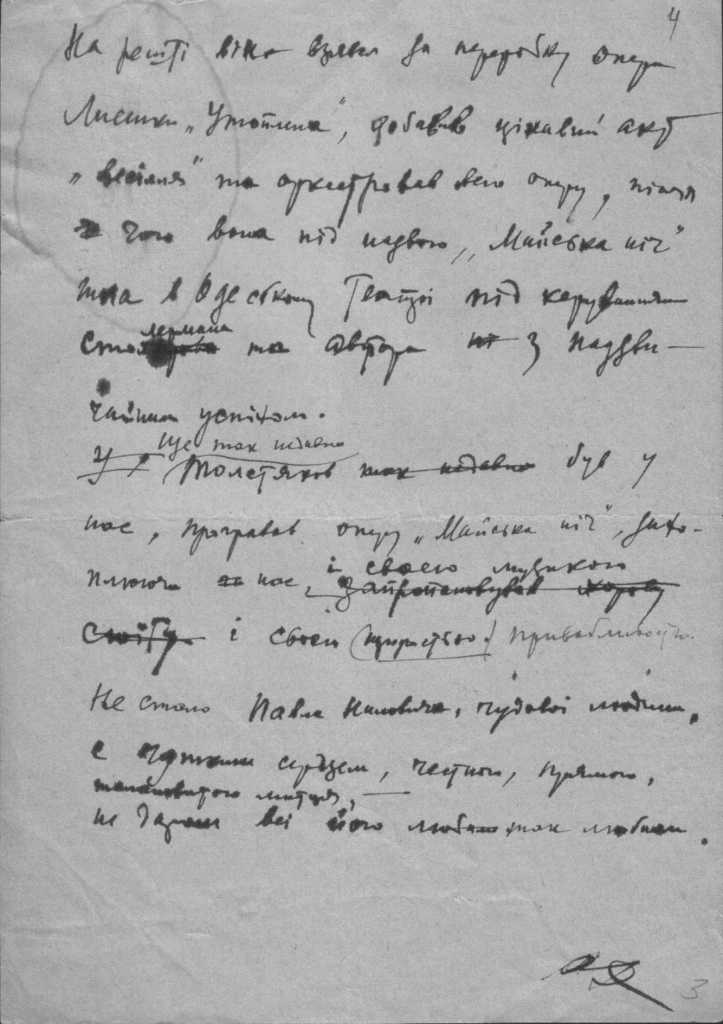 4
На решті він взявся за переробку опери
Лисенка „Утоплена", добавив цікавий акт
„весілля" та оркестровав всю оперу, після
чого вона під назвою „Майська ніч"
йшла в Одеському Театрі під керуванням
Столермана
та автора з надзви-
чайним успіхом.
Ще так недавно
У Толстяков так недавно був у
нас, програвав оперу „Майська ніч", захо-
плюючи нас, і своєю музикою
запропонував хорову
сюїту і своєю щирістью привабливостю.
Не стало Павла Ниловича, чудової людини,
с чутким серцем, честного, прямого,
талановитого митця, —
не даром всі його так любили.
3